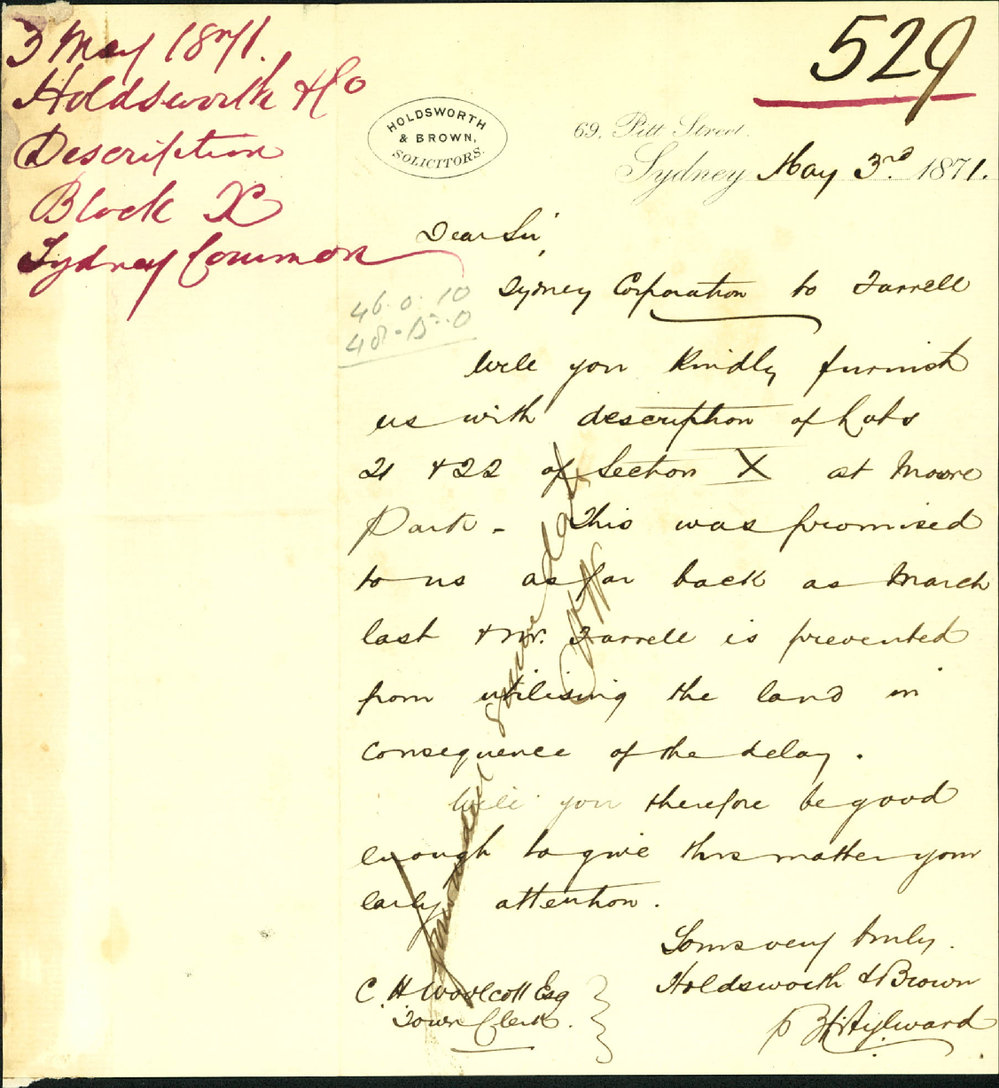 3 May 1871.
Holdsworth & Co
Description
Block X
Sydney Common
529
HOLDSWORTH
& BROWN,
SOLICITORS.
69. Pitt Street.
Sydney May 3rd 1871.
Dear Sir,
Sydney Corporation to Farrell
46.0.10
48.15.0
Will you kindly furnish
us with description of Lots
21 & 22 of Section X at Moore
Park - This was promised
to us as far back as March
last & Mr. Farrell is prevented
from utilising the land in
consequence of the delay.
Will you therefore be good
enough to give this matter your
early attention.
Yours very truly.
Holdsworth & Brown
C. H. Woolcott Esq
Town Clerk.
p B H Aylward
same date